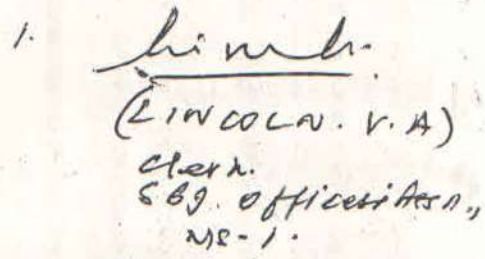 1.
(LINCOLN. V. A)
Clerk.
SBJ. Officers' Assn.,
MS-1.